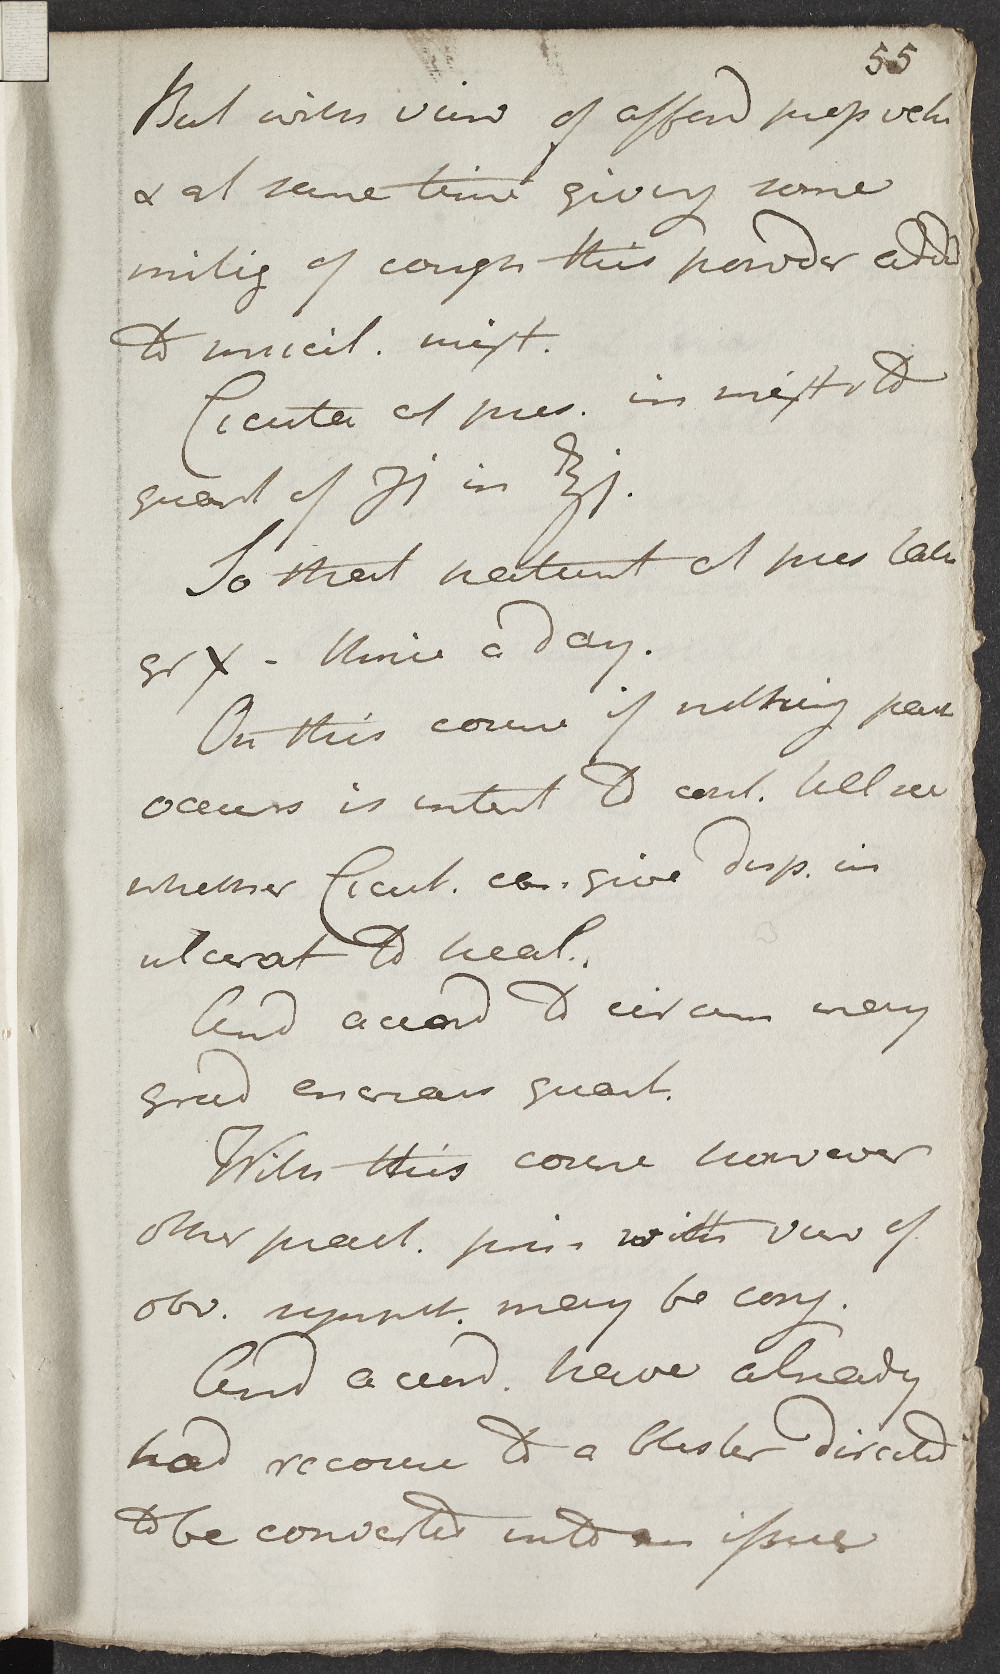 55
But with view of afford prop vehi
& at same time giving some
mitig of cough this powder add
to mucil. mixt.
Cicuta at pres. in mixt to
quant of ʒj in ℥j.
So that patient at pres take
gr x - thrice a day.
On this course if nothing part
occurs is intent to cont. till see
whether Cicut. can give disp. in
ulcerat to heal.
And accord to circum may
grad encreas quant.
With this course however
other pract. prin with view of
obv. sympt. may be conj.
And accord. have already
had recourse to a blister directed
to be converted into an issue